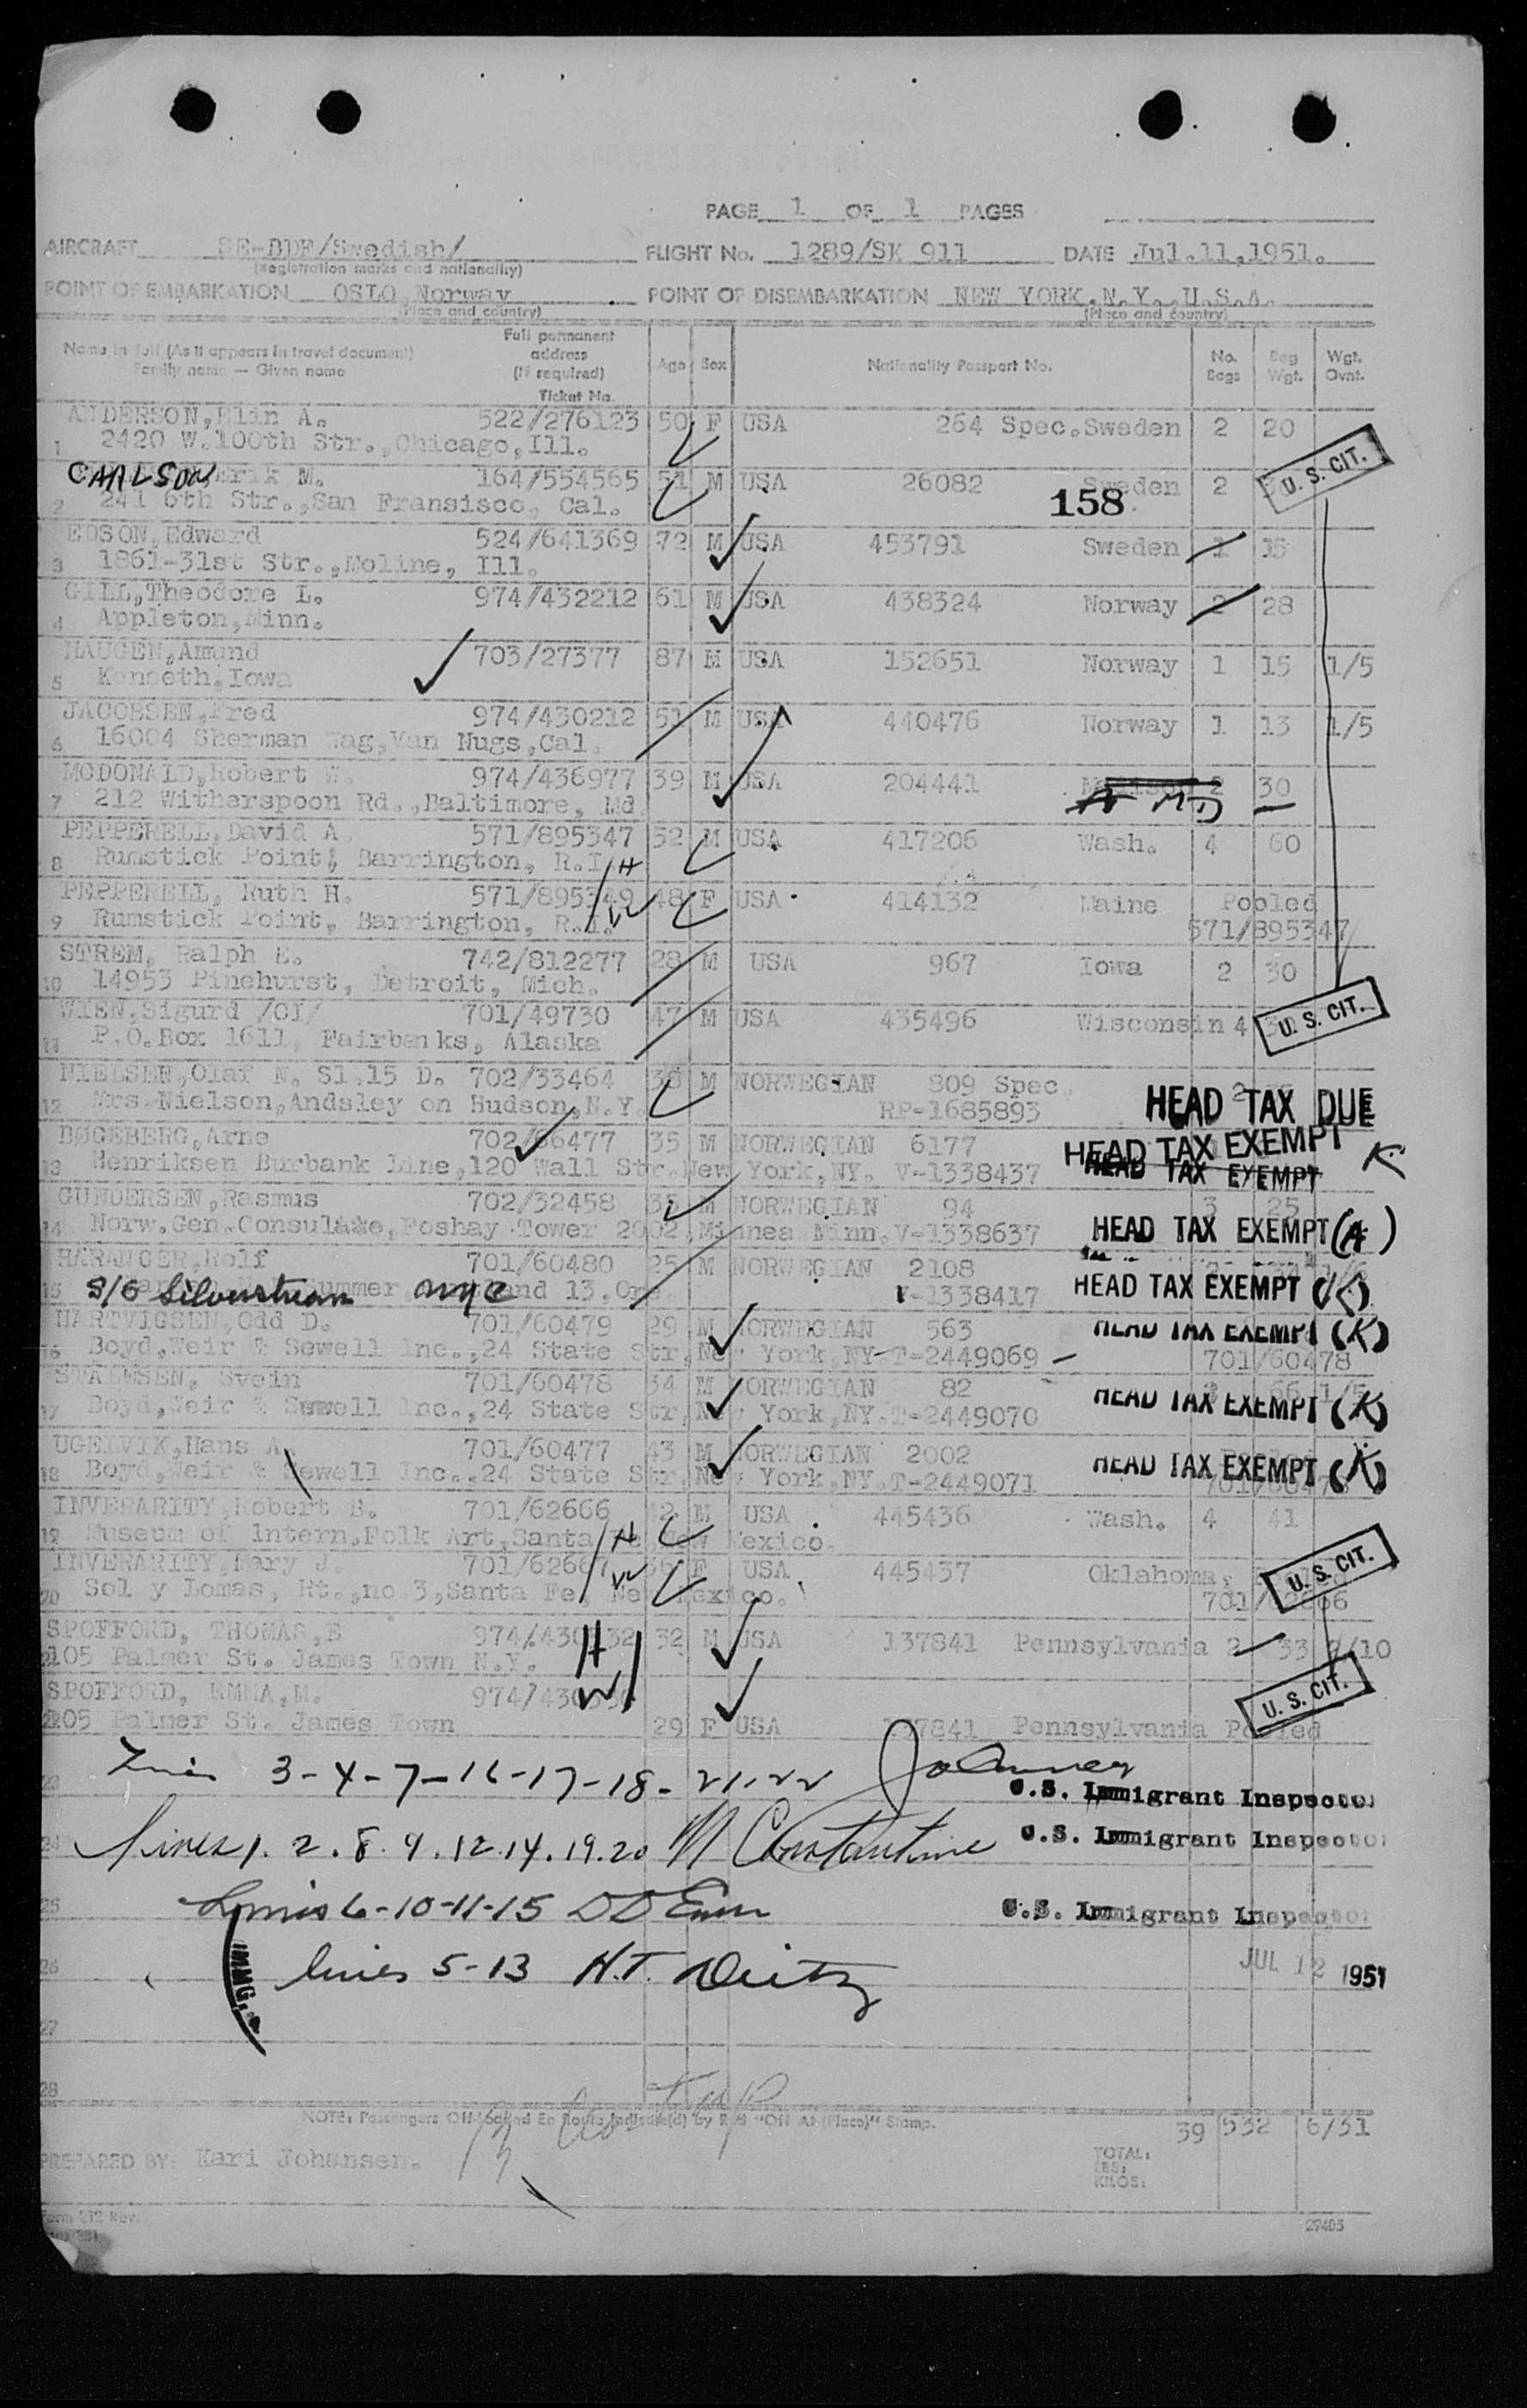 PAGE 1 OF 1 PAGES
AIRCRAFT SE-BDF/Swedish/ FLIGHT No. 1289/SK 911 DATE Jul.11,1951.
(Registration marks and nationality)
POINT OF EMBARKATION OSLO,Norway POINT OF DISEMBARKATION NEW YORK,N.Y.,U.S.A.
(Place and country) (Place and country)
Name in full (As it appears in travel document) Family name — Given name Full permanent address (if required) Ticket No. Age Sex Nationality Passport No. No. Bags Bag Wgt. Wgt. Ovnt.
ANDERSON,Elin A. 522/276123 50 F USA 264 Spec.Sweden 2 20
1 2420 W.100th Str.,Chicago,Ill.
CARLSON Erik M. 164/554565 51 M USA 26082 Sweden 2 U. S. CIT.
2 241 6th Str.,San Fransisco, Cal. 158
EDSON,Edward 524/641369 72 M USA 453791 Sweden 1 15
3 1861-31st Str.,Moline, Ill.
GILL,Theodore L. 974/432212 61 M USA 438324 Norway 2 28
4 Appleton,Minn.
HAUGEN,Amund 703/27377 87 M USA 152651 Norway 1 15 1/5
5 Kenseth,Iowa
JACOBSEN,Fred 974/430212 51 M USA 440476 Norway 1 13 1/5
6 16004 Sherman Wag,Van Nugs,Cal.
MCDONALD,Robert W. 974/436977 39 M USA 204441 2 30
7 212 Witherspoon Rd.,Baltimore, Md MD
PEPPERELL,David A. 571/895347 52 M USA 417206 Wash. 4 60
8 Rumstick Point, Barrington, R.I. H
PEPPERELL, Ruth H. 571/895349 48 F USA 414132 Maine Pooled
9 Rumstick Point, Barrington, R.I. W 571/895347
STREM, Ralph E. 742/812277 28 M USA 967 Iowa 2 30
10 14953 Pinehurst, Detroit, Mich.
WIEN,Sigurd /CI/ 701/49730 47 M USA 435496 Wisconsin 4 U. S. CIT.
11 P.O.Box 1611, Fairbanks, Alaska
NIELSEN,Olaf N. Sl.15 D. 702/33464 38 M NORWEGIAN 809 Spec. 2
12 Mrs.Nielson,Andsley on Hudson,N.Y. RP-1685893 HEAD TAX DUE
BØGEBERG,Arne 702/66477 35 M NORWEGIAN 6177 HEAD TAX EXEMPT K
13 Henriksen Burbank Line,120 Wall Str.New York,NY. V-1338437 HEAD TAX EXEMPT
GUNDERSEN,Rasmus 702/32458 35 M NORWEGIAN 94 3 25
14 Norw.Gen.Consulate,Foshay Tower 2002,Minnea Minn.V-1338637 HEAD TAX EXEMPT (A)
HARANGER,Rolf 701/60480 25 M NORWEGIAN 2108
15 S/S Silverstream nyc and 13, V-1338417 HEAD TAX EXEMPT (K)
HARTVIGSEN,Odd D. 701/60479 29 M NORWEGIAN 563 HEAD TAX EXEMPT (K)
16 Boyd,Weir & Sewell Inc.,24 State Str,New York,NY.T-2449069 701/60478
STALESEN, Svein 701/60478 34 M NORWEGIAN 82 HEAD TAX EXEMPT (K)
17 Boyd,Weir & Sewell Inc.,24 State Str,New York,NY.T-2449070
UGELVIK,Hans A. 701/60477 43 M NORWEGIAN 2002 HEAD TAX EXEMPT (K)
18 Boyd,Weir & Sewell Inc.,24 State Str,New York,NY.T-2449071
INVERARITY,Robert B. 701/62666 42 M USA 445436 Wash. 4 41
19 Museum of Intern.Folk Art,Santa Fe New Mexico. H
INVERARITY,Mary J. 701/62667 F USA 445437 Oklahoma, U. S. CIT.
20 Sol y Lomas, Rt.,no.3,Santa Fe, New Mexico. W 701/62666
SPOFFORD, THOMAS,E 32 M USA 137841 Pennsylvania 2 33 2/10
21 105 Palmer St. James Town N.Y. H
SPOFFORD, EMMA,M. W U. S. CIT.
22 105 Palmer St. James Town 29 F USA 137841 Pennsylvania Pooled
23 Lines 3-4-7-16-17-18-21-22 U.S. Immigrant Inspector
24 Lines 1. 2. 8. 9. 12. 14. 19. 20 N Constantine U.S. Immigrant Inspector
25 Lines 6-10-11-15 U.S. Immigrant Inspector
26 IMMG. lines 5-13 H.T. Deitz JUL 12 1951
27
28
NOTE: Passengers Off-loaded En Route indicate(d) by Red "Off At (Place)" Stamp. 39 532 6/31
PREPARED BY: Kari Johansen. TOTAL:
LBS:
KILOS:
Form 212 Rev.
29403